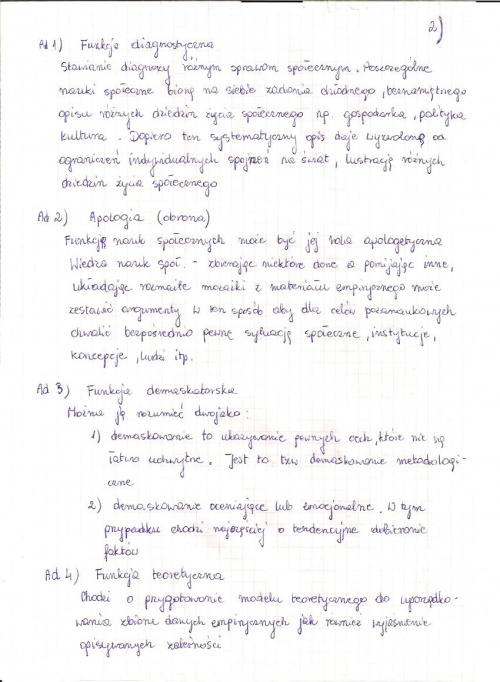 2)
Ad 1) Funkcja diagnostyczna
Stawianie diagnozy różnym sprawom społecznym. Poszczególne
nauki społeczne biorą na siebie zadania chłodnego, beznamiętnego
opisu różnych dziedzin życia społecznego np. gospodarka, polityka
kultura. Dopiero ten systematyczny opis daje wyzwoloną od
ograniczeń indywidualnych spojrzeń na świat, lustrację różnych
dziedzin życia społecznego
Ad 2) Apologia (obrona)
Funkcją nauk społecznych może być jej rola apologetyczna
Wiedza nauk społ. - zbierając niektóre dane a pomijając inne,
układając rozmaite mozaiki z materiału empirycznego może
zestawić argumenty w ten sposób aby dla celów pozanaukowych
chwalić bezpośrednio pewną sytuację społeczne, instytucje,
koncepcje, ludzi itp.
Ad 3) Funkcja demaskatorska
Można ją rozumieć dwojako:
1) demaskowanie to ukazywanie pewnych cech, które nie są
łatwo uchwytne. Jest to tzw demaskowanie metodologi-
czne
2) demaskowanie oceniające lub emocjonalne. W tym
przypadku chodzi najczęściej o tendencyjne dobieranie
faktów
Ad 4) Funkcja teoretyczna
Chodzi o przygotowanie modelu teoretycznego do uporządko-
wania zbioru danych empirycznych jak również wyjaśnienie
opisywanych zależności